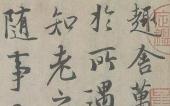 趣舍萬
於所遇
知老之
隨事